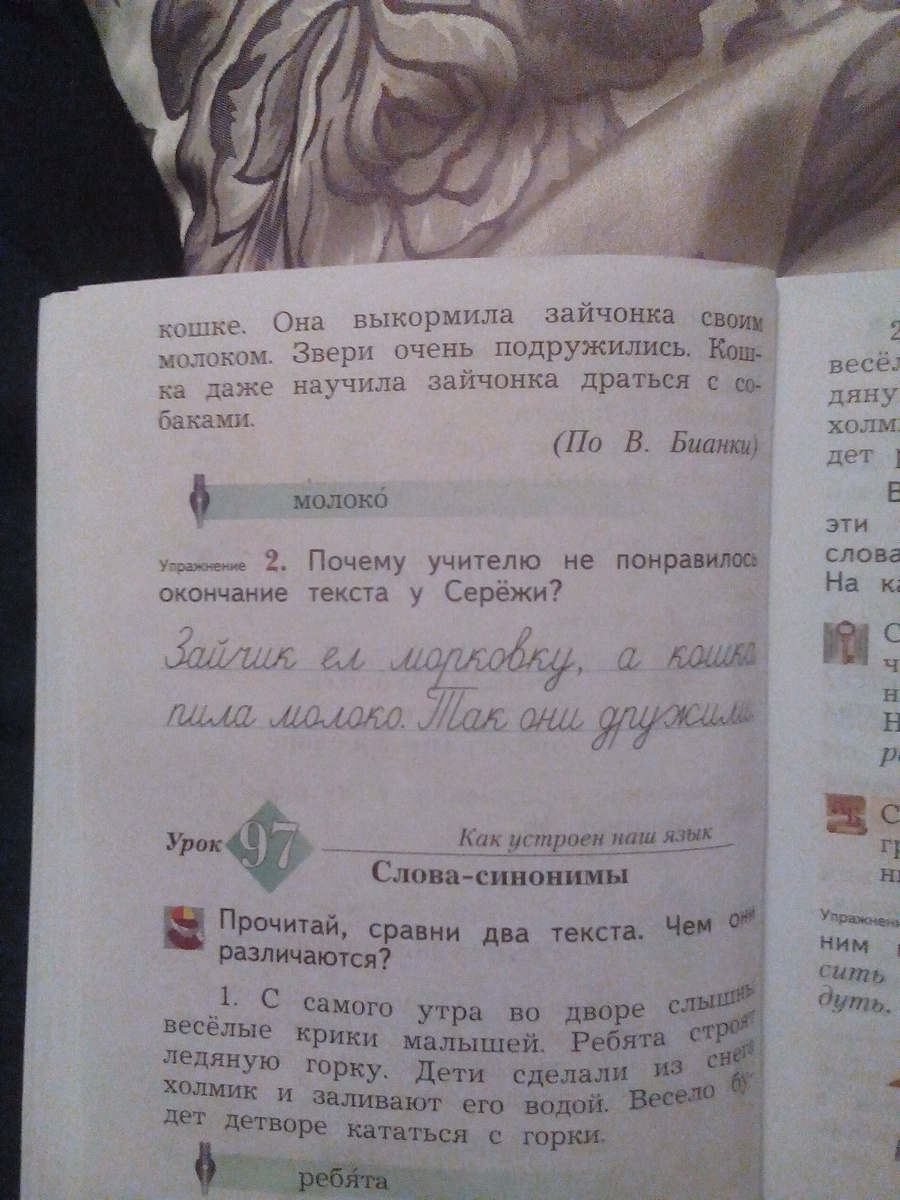 кошке. Она выкормила зайчонка своим
молоком. Звери очень подружились. Кош-
ка даже научила зайчонка драться с со-
баками.
(По В. Бианки)
молоко́
Упражнение 2. Почему учителю не понравилось
окончание текста у Серёжи?
Зайчик ел морковку, а кошка
пила молоко. Так они дружили.
Урок 97 Как устроен наш язык
Слова-синонимы
Прочитай, сравни два текста. Чем они
различаются?
1. С самого утра во дворе слышны
весёлые крики малышей. Ребята строят
ледяную горку. Дети сделали из снега
холмик и заливают его водой. Весело бу-
дет детворе кататься с горки.
ребя́та
2
весёл
дяну
холми
дет р
В
эти
слова
На ка
С
ч
н
Н
р
С
гр
ни
Упражнени
ним
сить
дуть.